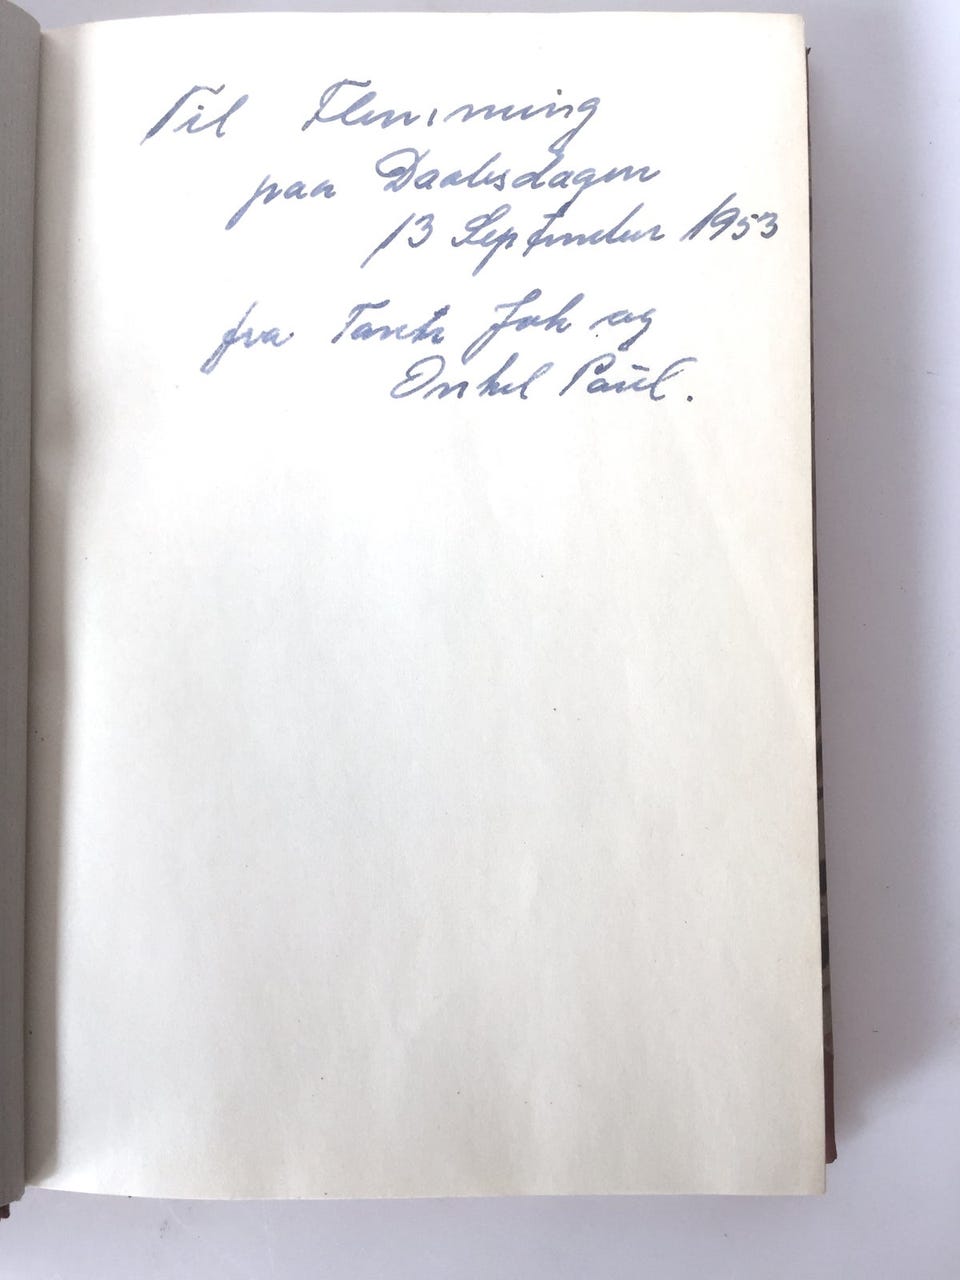 Til Flemming
paa Daabsdagen
13 September 1953
fra Tante Joh og
Onkel Paul.